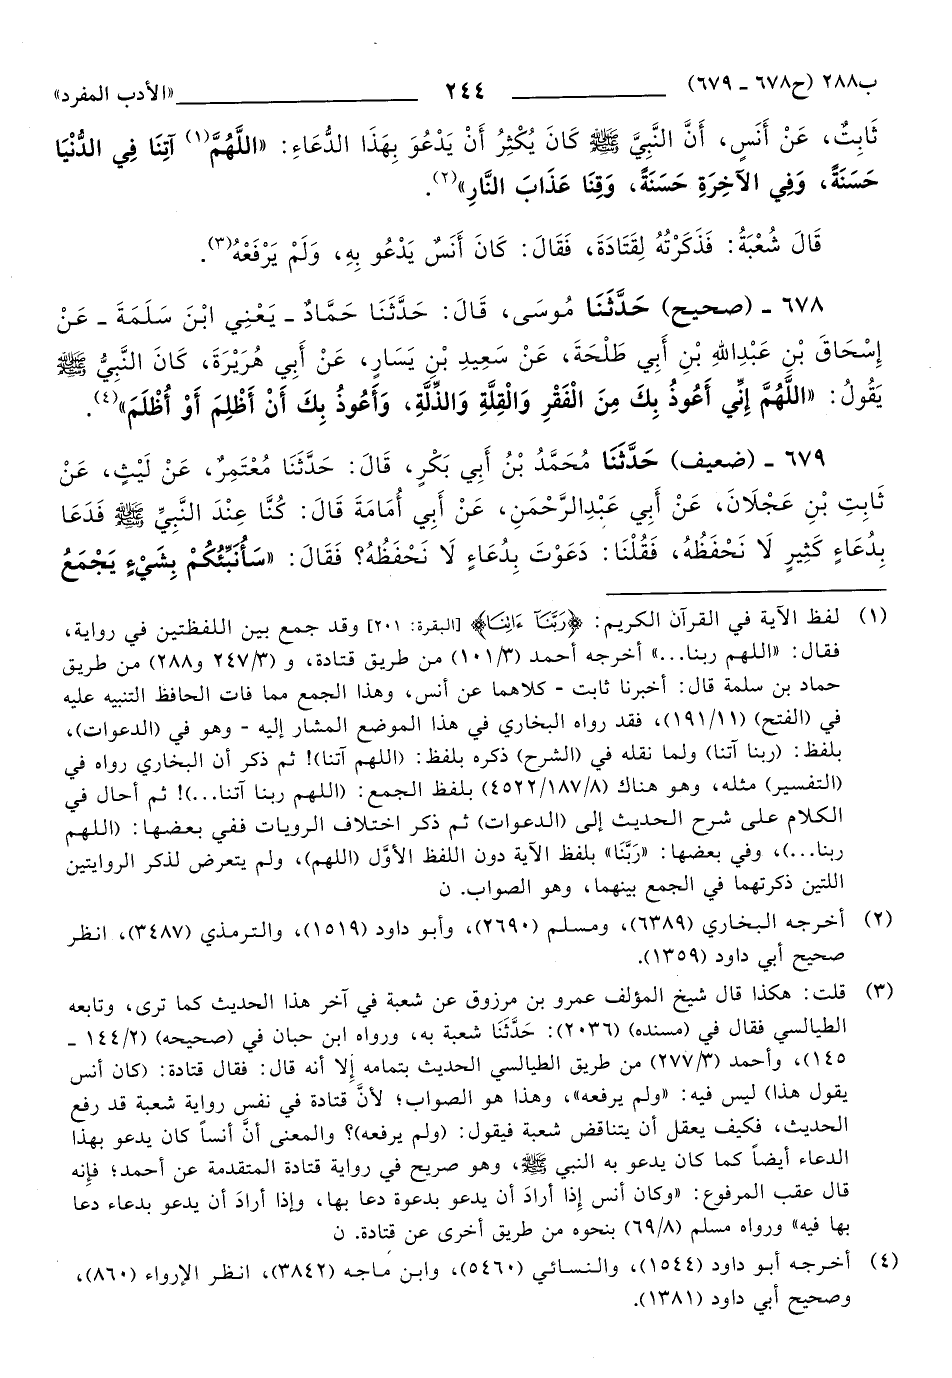 ب٢٨٨ (ح٦٧٨ - ٦٧٩) ٢٤٤ «الأدب المفرد»
ثَابِتٌ، عَنْ أَنَسٍ، أَنَّ النَّبِيَّ ﷺ كَانَ يُكْثِرُ أَنْ يَدْعُوَ بِهَذَا الدُّعَاءِ: «اللَّهُمَّ(١) آتِنَا فِي الدُّنْيَا
حَسَنَةً، وَفِي الآخِرَةِ حَسَنَةً، وَقِنَا عَذَابَ النَّارِ»(٢).
قَالَ شُعْبَةُ: فَذَكَرْتُهُ لِقَتَادَةَ، فَقَالَ: كَانَ أَنَسٌ يَدْعُو بِهِ، وَلَمْ يَرْفَعْهُ(٣).
٦٧٨ - (صحيح) حَدَّثَنَا مُوسَى، قَالَ: حَدَّثَنَا حَمَّادٌ - يَعْنِي ابْنَ سَلَمَةَ - عَنْ
إِسْحَاقَ بْنِ عَبْدِاللهِ بْنِ أَبِي طَلْحَةَ، عَنْ سَعِيدِ بْنِ يَسَارٍ، عَنْ أَبِي هُرَيْرَةَ، كَانَ النَّبِيُّ ﷺ
يَقُولُ: «اللَّهُمَّ إِنِّي أَعُوذُ بِكَ مِنَ الْفَقْرِ وَالْقِلَّةِ وَالذِّلَّةِ، وَأَعُوذُ بِكَ أَنْ أَظْلِمَ أَوْ أُظْلَمَ»(٤).
٦٧٩ - (ضعيف) حَدَّثَنَا مُحَمَّدُ بْنُ أَبِي بَكْرٍ، قَالَ: حَدَّثَنَا مُعْتَمِرٌ، عَنْ لَيْثٍ، عَنْ
ثَابِتِ بْنِ عَجْلَانَ، عَنْ أَبِي عَبْدِالرَّحْمَنِ، عَنْ أَبِي أُمَامَةَ قَالَ: كُنَّا عِنْدَ النَّبِيِّ ﷺ فَدَعَا
بِدُعَاءٍ كَثِيرٍ لَا نَحْفَظُهُ، فَقُلْنَا: دَعَوْتَ بِدُعَاءٍ لَا نَحْفَظُهُ؟ فَقَالَ: «سَأُنَبِّئُكُمْ بِشَيْءٍ يَجْمَعُ
(١) لفظ الآية في القرآن الكريم: ﴿رَبَّنَآ ءَاتِنَا﴾ [البقرة: ٢٠١] وقد جمع بين اللفظتين في رواية،
فقال: «اللهم ربنا...» أخرجه أحمد (١٠١/٣) من طريق قتادة، و (٢٤٧/٣ و٢٨٨) من طريق
حماد بن سلمة قال: أخبرنا ثابت - كلاهما عن أنس، وهذا الجمع مما فات الحافظ التنبيه عليه
في (الفتح) (١٩١/١١)، فقد رواه البخاري في هذا الموضع المشار إليه - وهو في (الدعوات)،
بلفظ: (ربنا آتنا) ولما نقله في (الشرح) ذكره بلفظ: (اللهم آتنا)! ثم ذكر أن البخاري رواه في
(التفسير) مثله، وهو هناك (٤٥٢٢/١٨٧/٨) بلفظ الجمع: (اللهم ربنا آتنا...)! ثم أحال في
الكلام على شرح الحديث إلى (الدعوات) ثم ذكر اختلاف الرويات ففي بعضها: (اللهم
ربنا...)، وفي بعضها: «رَبَّنَا» بلفظ الآية دون اللفظ الأوَّل (اللهم)، ولم يتعرض لذكر الروايتين
اللتين ذكرتهما في الجمع بينهما، وهو الصواب. ن
(٢) أخرجه البخاري (٦٣٨٩)، ومسلم (٢٦٩٠)، وأبو داود (١٥١٩)، والترمذي (٣٤٨٧)، انظر
صحيح أبي داود (١٣٥٩).
(٣) قلت: هكذا قال شيخ المؤلف عمرو بن مرزوق عن شعبة في آخر هذا الحديث كما ترى، وتابعه
الطيالسي فقال في (مسنده) (٢٠٣٦): حَدَّثَنَا شعبة به، ورواه ابن حبان في (صحيحه) (١٤٤/٢ -
١٤٥)، وأحمد (٢٧٧/٣) من طريق الطيالسي الحديث بتمامه إلا أنه قال: فقال قتادة: (كان أنس
يقول هذا) ليس فيه: «ولم يرفعه»، وهذا هو الصواب؛ لأنَّ قتادة في نفس رواية شعبة قد رفع
الحديث، فكيف يعقل أن يتناقض شعبة فيقول: (ولم يرفعه)؟ والمعنى أنَّ أنساً كان يدعو بهذا
الدعاء أيضاً كما كان يدعو به النبي ﷺ، وهو صريح في رواية قتادة المتقدمة عن أحمد؛ فإنه
قال عقب المرفوع: «وكان أنس إذا أرادَ أن يدعو بدعوة دعا بها، وإذا أرادَ أن يدعو بدعاء دعا
بها فيه» ورواه مسلم (٦٩/٨) بنحوه من طريق أخرى عن قتادة. ن
(٤) أخرجه أبو داود (١٥٤٤)، والنسائي (٥٤٦٠)، وابن ماجه (٣٨٤٢)، انظر الإرواء (٨٦٠)،
وصحيح أبي داود (١٣٨١).